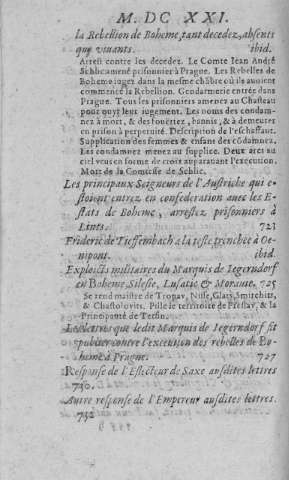 M. DC XXI.
la Rebellion de Boheme, tant decedez, absents
que viuants. ibid.
Arrest contre les decedez. Le Comte Iean André
Schlic amené prisonnier à Prague. Les Rebelles de
Boheme iugez dans la mesme chãbre où ils auoient
commencé la Rebellion. Gendarmerie entrée dans
Prague. Tous les prisonniers amenez au Chasteau
pour ouyr leur iugement. Les noms des condam-
nez à mort, & des foüettez, bannis, & à demeurer
en prison à perpetuité. Description de l'eschaffaut.
Supplication des femmes & enfans des cõdamnez.
Les condamnez menez au supplice. Deux arcs au
ciel veus en forme de croix auparauant l'execution.
Mort de la Comtesse de Schlic.
Les principaux Seigneurs de l'Austriche qui e-
stoient entrez en confederation auec les E-
stats de Boheme, arrestez prisonniers à
Lints. 721
Frideric de Tieffembach a la teste trenchée à Oe-
nipont. ibid.
Exploicts militaires du Marquis de Iegerndorf
en Boheme, Silesie, Lusatie & Morauie. 725
Se rend maistre de Tropau, Nisse, Glats,
& Pille le territoire de & la
Principauté de
Les lettres que ledit Marquis de Iegerndorf fit
publier contre l'execution des rebelles de Bo-
heme à Prague. 727
Response de l'Eslecteur de Saxe ausdites lettres
730.
Autre response de l'Empereur ausdites lettres.
732